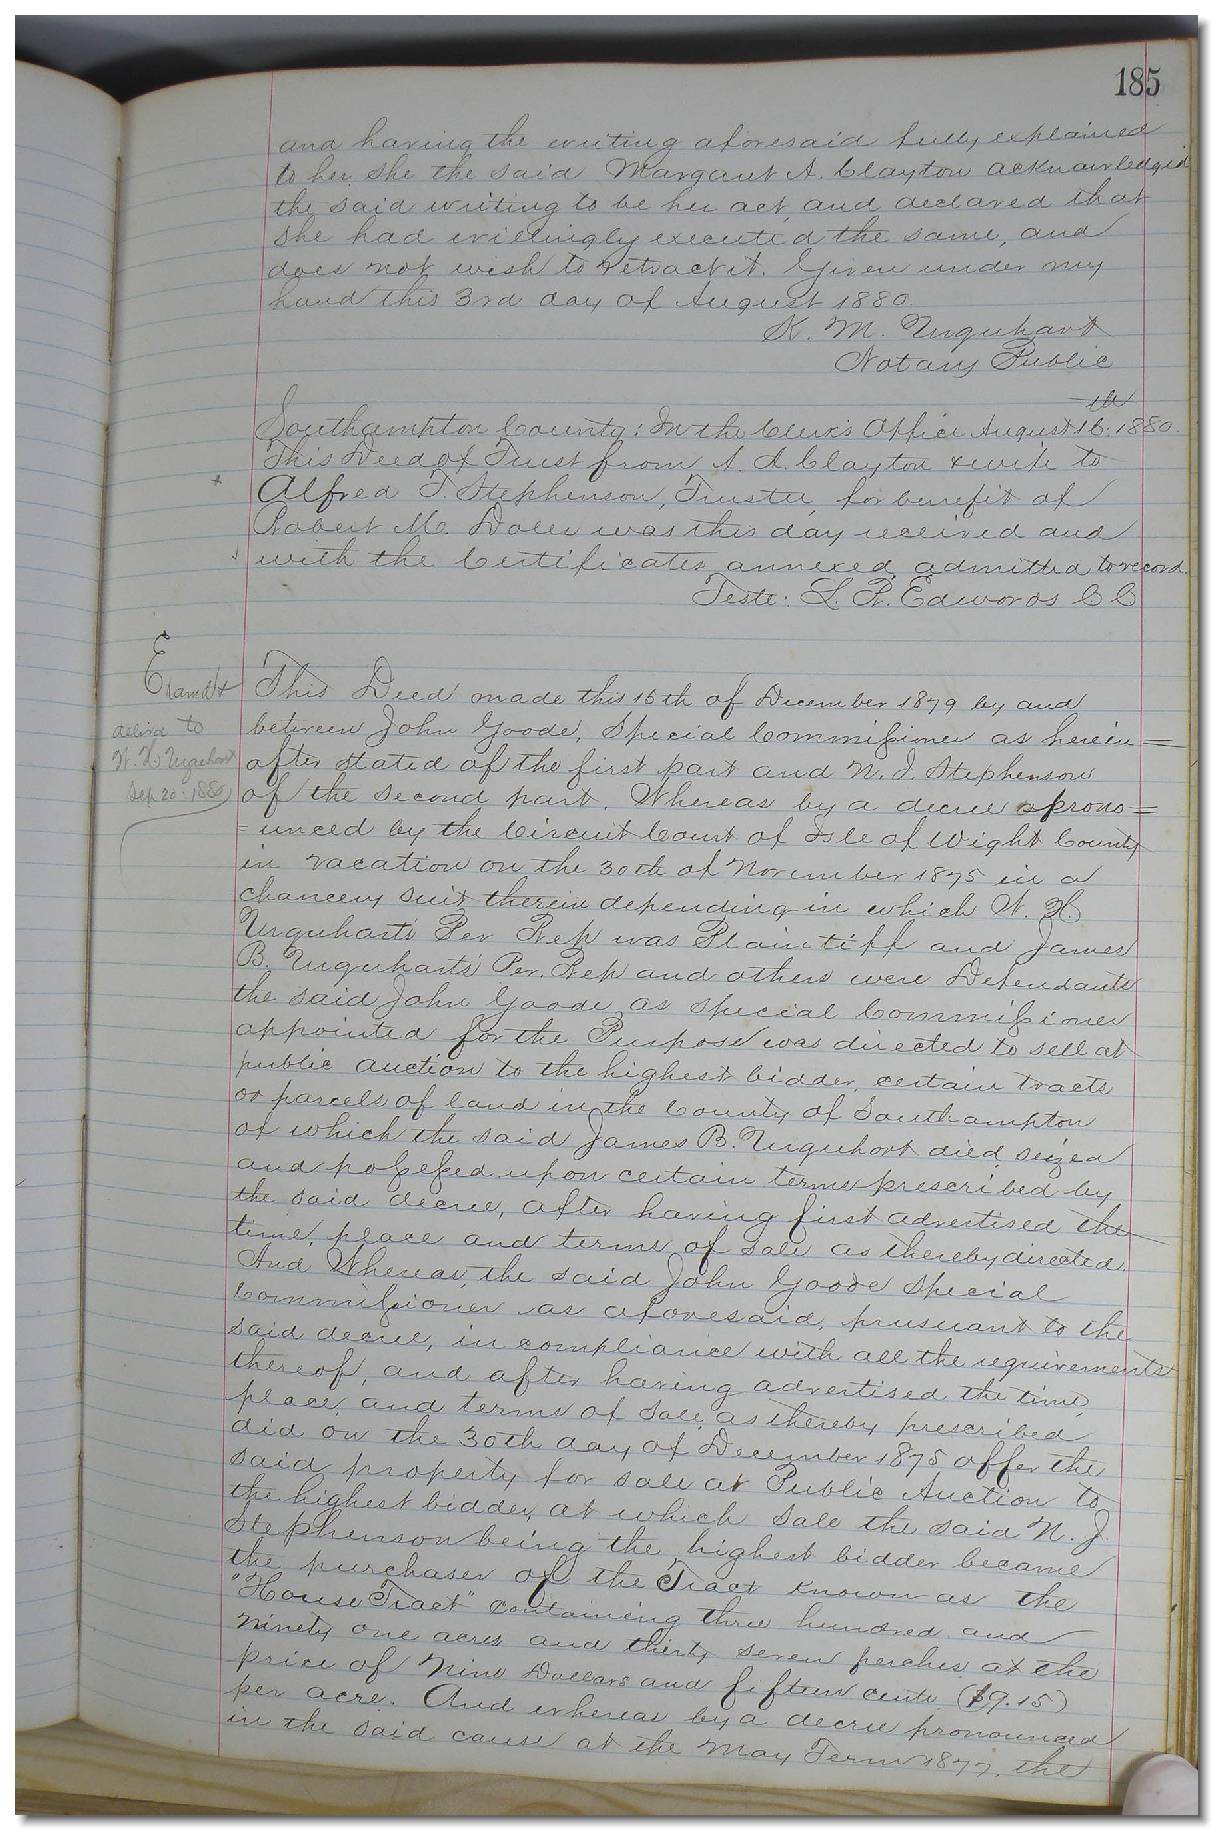 185
and having the writing aforesaid fully explained
to her, she the said Margaret A. Clayton acknowledged
the said writing to be her act, and declared that
she had willingly executed the same, and
does not wish to retract it. Given under my
hand this 3rd day of August 1880.
K. M. Urquhart
Notary Public
Southampton County: In the Clerk's Office August 16th 1880.
This Deed of Trust from A. A. Clayton & wife to
Alfred T. Stephenson, Trustee, for benefit of
Robert M. was this day received and
with the Certificates annexed, admitted to record.
Teste: L. R. Edwards C C
Examd &
delivd to
W. H. Urquhart
Sep 20: 1880
This Deed made this 15th of December 1879 by and
between John Goode, Special Commissioner as herein=
after stated of the first part and N. J. Stephenson
of the second part. Whereas by a decree prono=
=unced by the Circuit Court of Isle of Wight County
in vacation on the 30th of November 1875 in a
chancery suit therein depending in which W. H.
Urquhart's Per Rep was Plaintiff and James
B. Urquhart's Per. Rep and others were Defendants
the said John Goode as special Commissioner
appointed for the Purpose was directed to sell at
public auction to the highest bidder, certain tracts
or parcels of land in the County of Southampton
of which the said James B. Urquhart died, seized
and possessed upon certain terms prescribed by
the said decree, after having first advertised the
time, place and terms of sale as thereby directed.
And Whereas, the said John Goode Special
Commissioner as aforesaid, prusuant to the
said decree, in compliance with all the requirements
thereof, and after having advertised the time,
place, and terms of sale, as thereby prescribed
did on the 30th day of December 1875 offer the
said property for sale at Public Auction to
the highest bidder, at which sale the said N. J.
Stephenson being the highest bidder became
the purchaser of the Tract known as the
"House Tract" containing three hundred and
ninety one acres and thirty seven perches at the
price of Nine Dollars and fifteen cents ($9.15)
per acre. And whereas by a decree pronounced
in the said cause at the May Term 1877, the